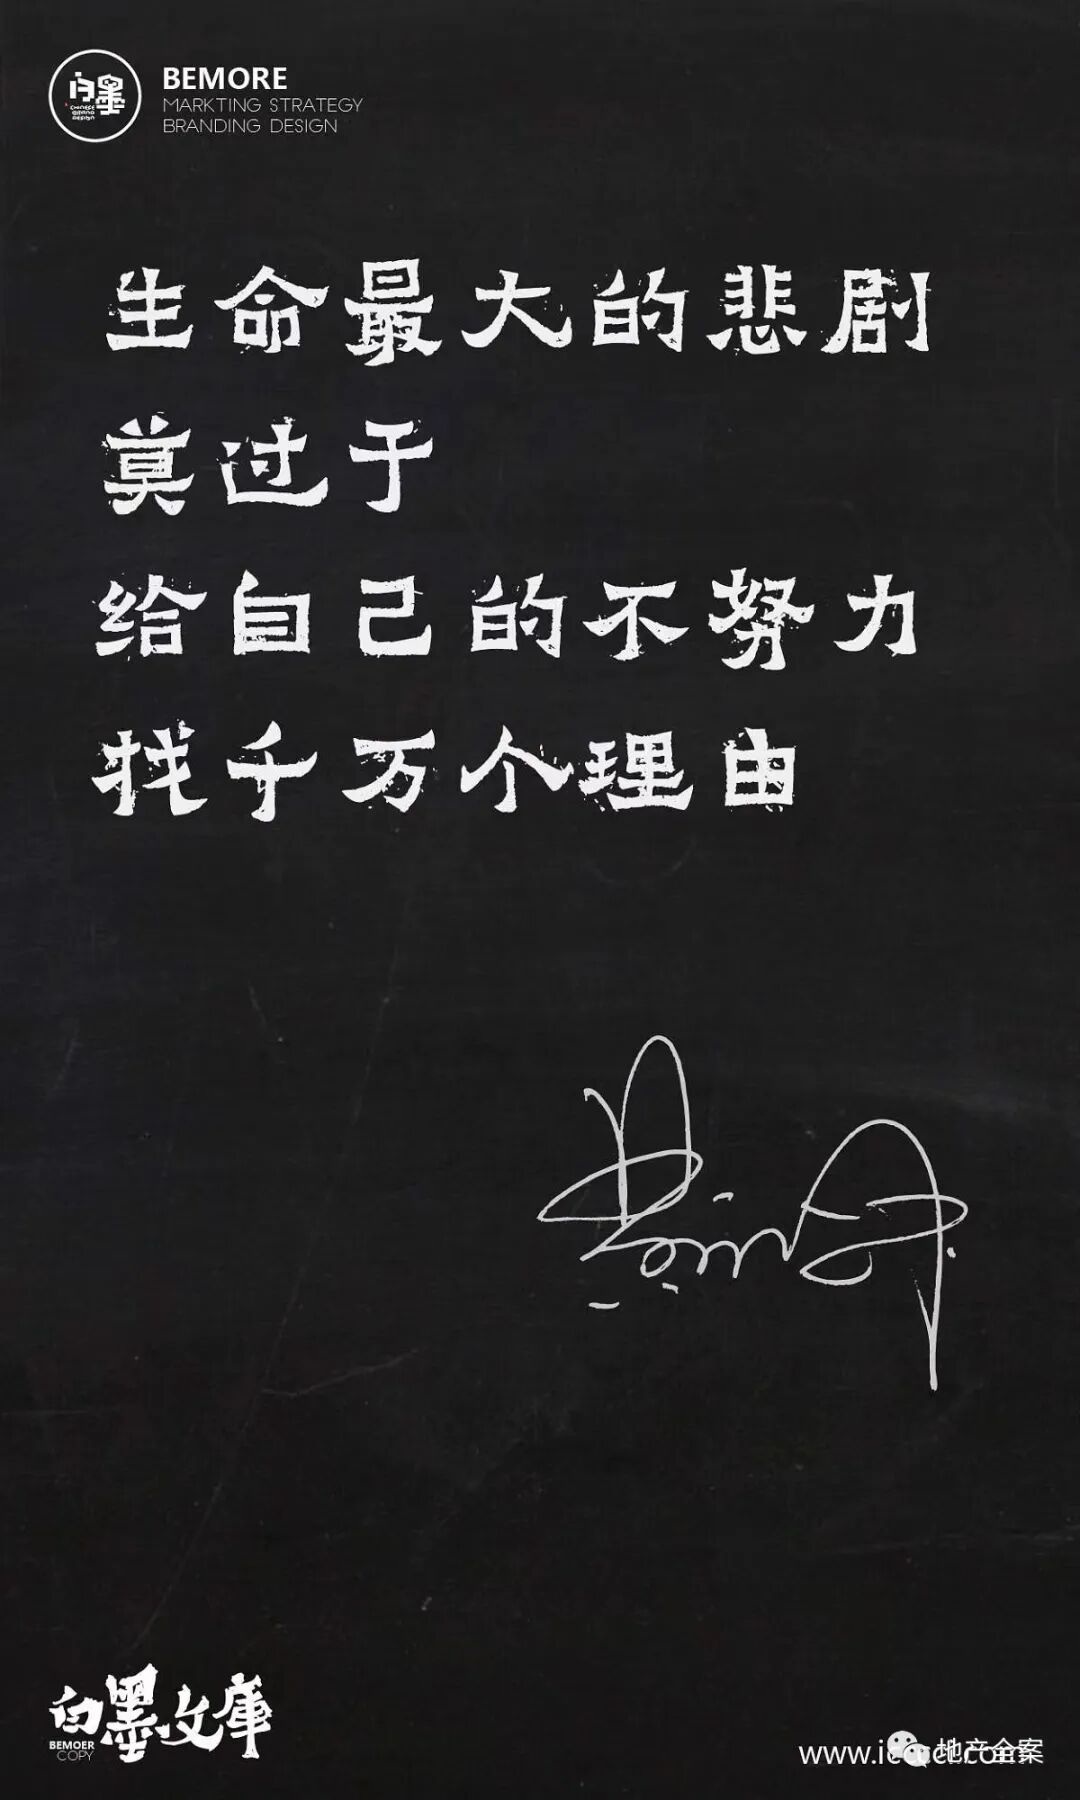 白墨
CHINESE
BRAND
DESIGN
BEMORE
MARKTING STRATEGY
BRANDING DESIGN
生命最大的悲剧
莫过于
给自己的不努力
找千万个理由
白墨文庫
BEMOER
COPY
地产全案